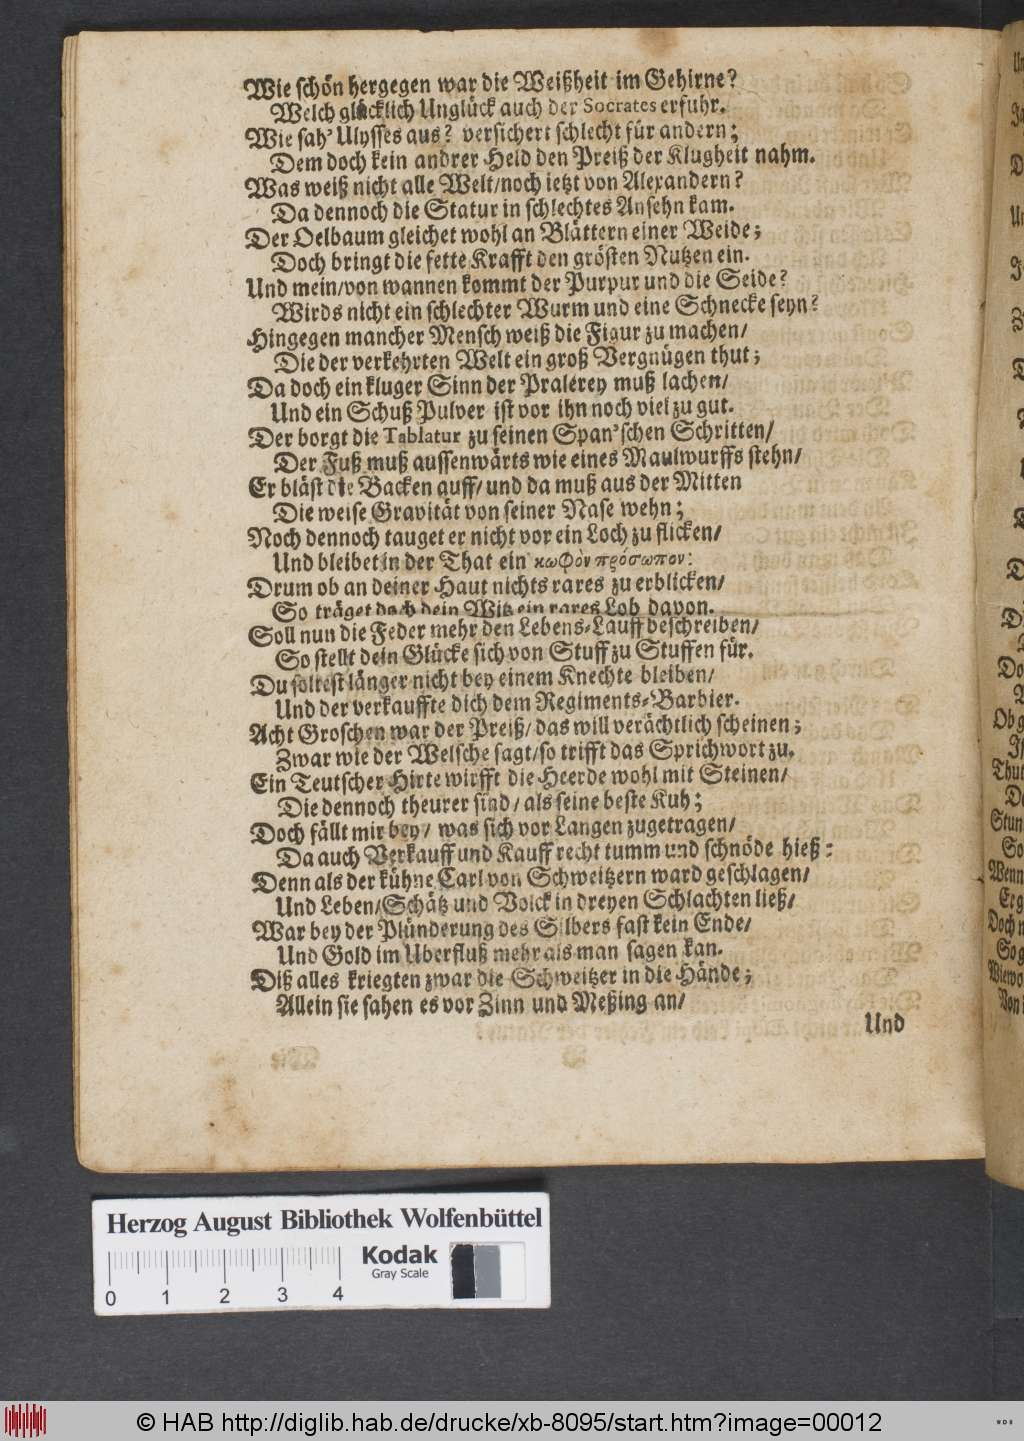 Wie schön hergegen war die Weißheit im Gehirne?
Welch glücklich Unglück auch der Socrates erfuhr.
Wie sah' Ulysses aus? versichert schlecht für andern;
Dem doch kein andrer Held den Preiß der Klugheit nahm.
Was weiß nicht alle Welt/noch ietzt von Alexandern?
Da dennoch die Statur in schlechtes Ansehn kam.
Der Oelbaum gleichet wohl an Blättern einer Weide;
Doch bringt die fette Krafft den grösten Nutzen ein.
Und mein/von wannen kommt der Purpur und die Seide?
Wirds nicht ein schlechter Wurm und eine Schnecke seyn?
Hingegen mancher Mensch weiß die Figur zu machen/
Die der verkehrten Welt ein groß Vergnügen thut;
Da doch ein kluger Sinn der Pralerey muß lachen/
Und ein Schuß Pulver ist vor ihn noch viel zu gut.
Der borgt die Tablatur zu seinen Span'schen Schritten/
Der Fuß muß aussenwärts wie eines Maulwurffs stehn/
Er bläst die Backen auff/ und da muß aus der Mitten
Die weise Gravität von seiner Nase wehn;
Noch dennoch tauget er nicht vor ein Loch zu flicken/
Und bleibet in der That ein κωφὸν πρόσωπον:
Drum ob an deiner Haut nichts rares zu erblicken/
So träget doch dein Witz ein rares Lob davon.
Soll nun die Feder mehr den Lebens-Lauff beschreiben/
So stellt dein Glücke sich von Stuff zu Stuffen für.
Du soltest länger nicht bey einem Knechte bleiben/
Und der verkauffte dich dem Regiments-Barbier.
Acht Groschen war der Preiß/ das will verächtlich scheinen;
Zwar wie der Welsche sagt/so trifft das Sprichwort zu.
Ein Teutscher Hirte wirfft die Heerde wohl mit Steinen/
Die dennoch theurer sind/ als seine beste Kuh;
Doch fällt mir bey/ was sich vor Langen zugetragen/
Da auch Verkauff und Kauff recht tumm und schnöde hieß:
Denn als der kühne Carl von Schweitzern ward geschlagen/
Und Leben/Schätz und Volck in dreyen Schlachten ließ/
War bey der Plünderung des Silbers fast kein Ende/
Und Gold im Uberfluß mehr als man sagen kan.
Diß alles kriegten zwar die Schweitzer in die Hände;
Allein sie sahen es vor Zinn und Meßing an/
Und
Herzog August Bibliothek Wolfenbüttel
Kodak
Gray Scale
0 1 2 3 4
© HAB http://diglib.hab.de/drucke/xb-8095/start.htm?image=00012